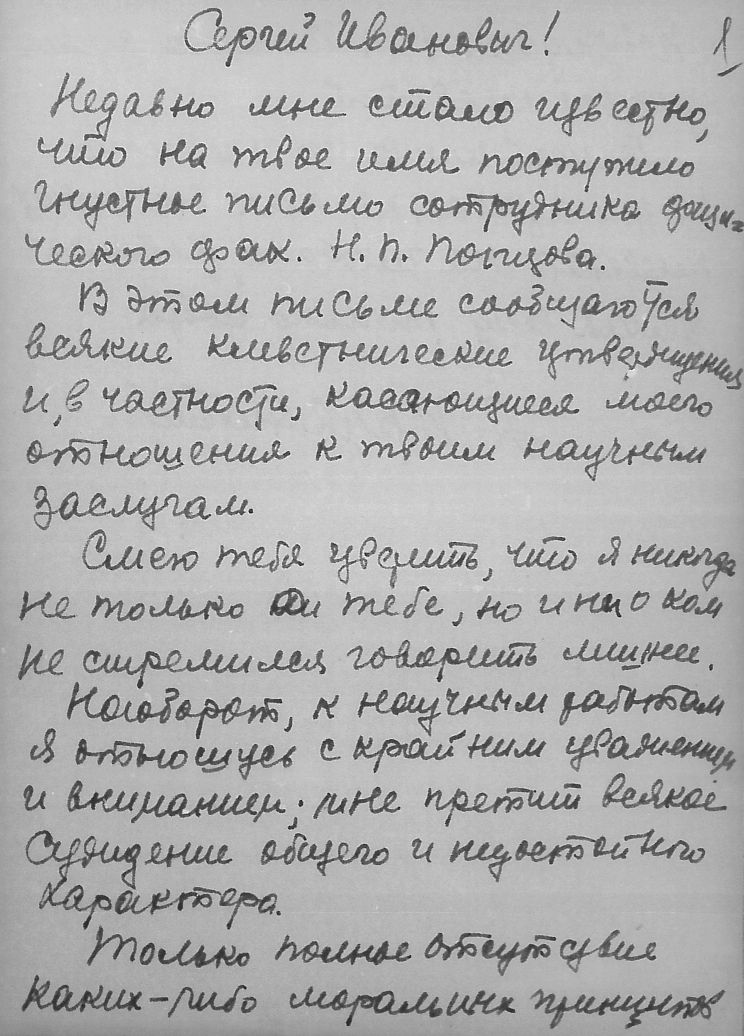 Сергей Иванович!
1
Недавно мне стало известно,
что на твое имя поступило
гнустное письмо сотрудника физи-
ческого фак. Н. П.
В этом письме сообщаются
всякие клевстнические утверждения
и, в частности, касающиеся моего
отношения к твоим научным
заслугам.
Смею тебя уверить, что я никогда
не только о тебе, но и ни о ком
не стремился говорить лишнее.
Наоборот, к научным работам
я отношусь с крайним уважением
и вниманием; мне претит всякое
суждение общего и недостойного
характера.
Только полное отсутствие
каких-либо моральных принципов